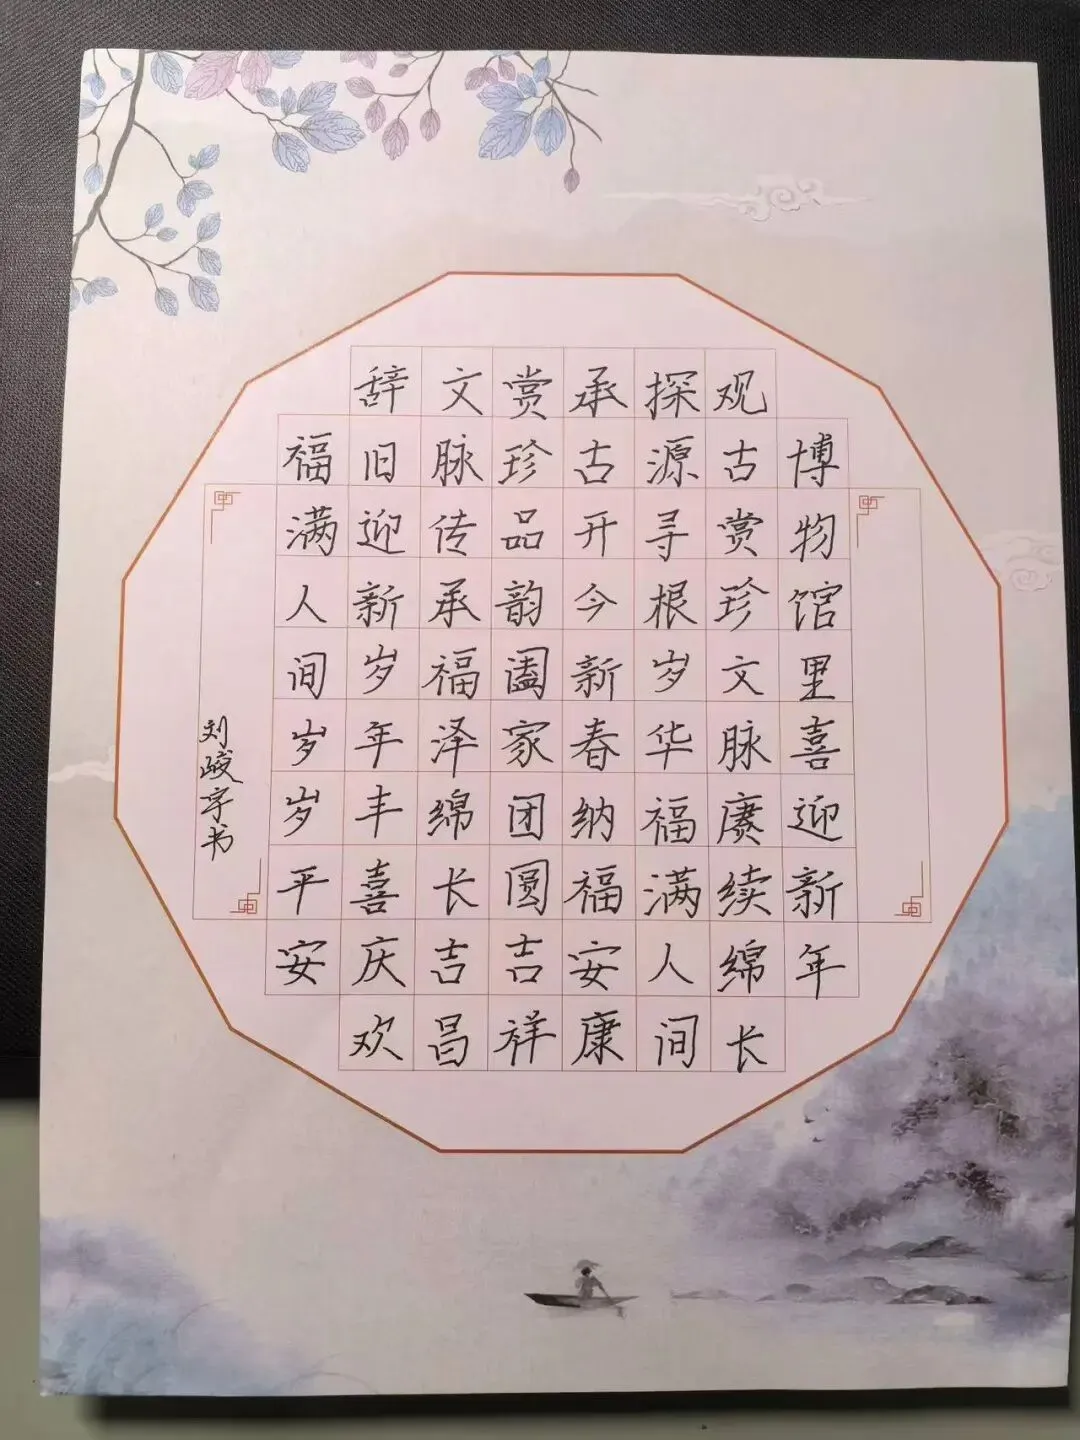 博物馆里喜迎新年
观古赏珍文脉赓续绵长
探源寻根岁华福满人间
承古开今新春纳福安康
赏珍品韵阖家团圆吉祥
文脉传承福泽绵长吉昌
辞旧迎新岁年丰喜庆欢
福满人间岁岁平安
刘峻宇书